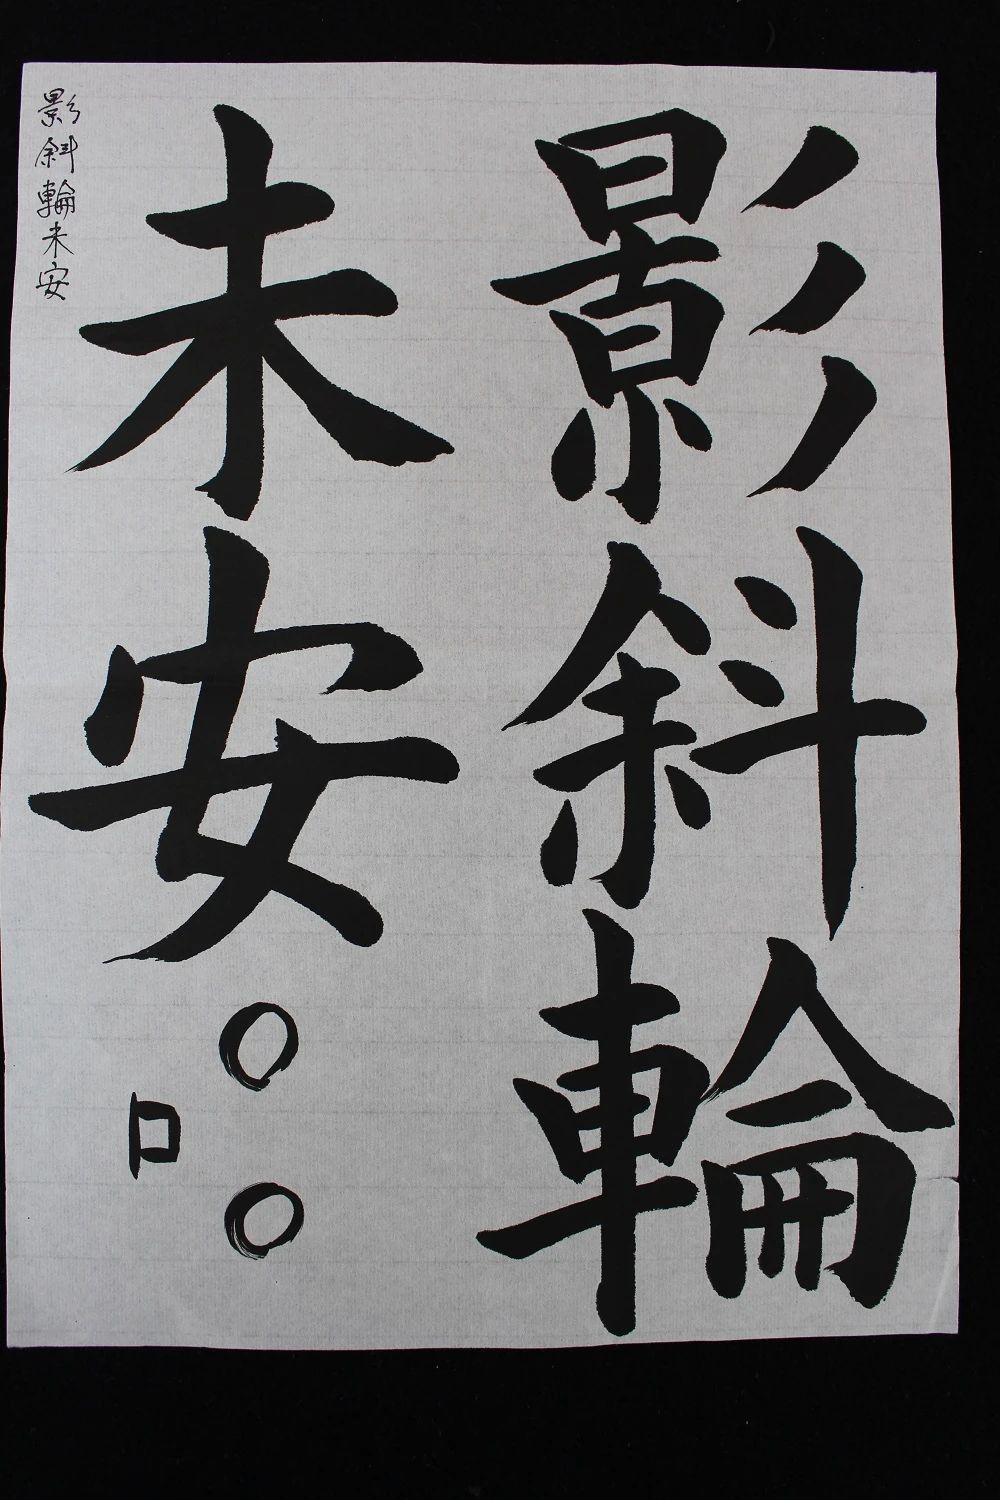 影斜輪
未安○○
口
影斜輪未安